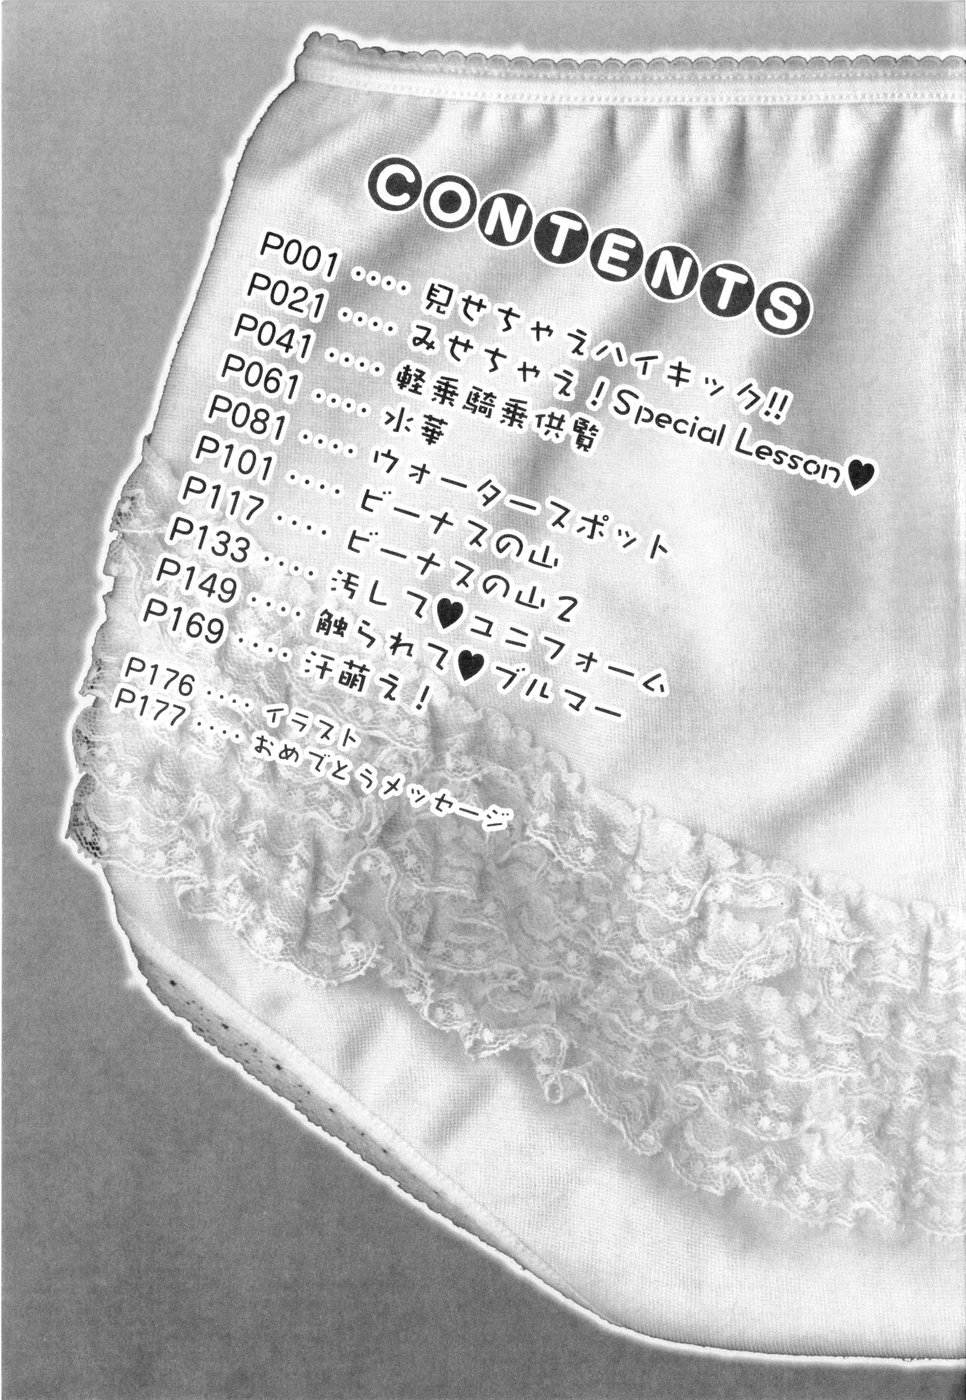 CONTENTS
P001 ････ 見せちゃえハイキック!!
P021 ････ みせちゃえ！Special Lesson♥
P041 ････ 軽乗騎乗供覧
P061 ････ 水華
P081 ････ ウォータースポット
P101 ････ ビーナスの山
P117 ････ ビーナスの山2
P133 ････ 汚して♥ユニフォーム
P149 ････ 触られて♥ブルマー
P169 ････ 汗萌え！
P176 ････ イラスト
P177 ････ おめでとうメッセージ